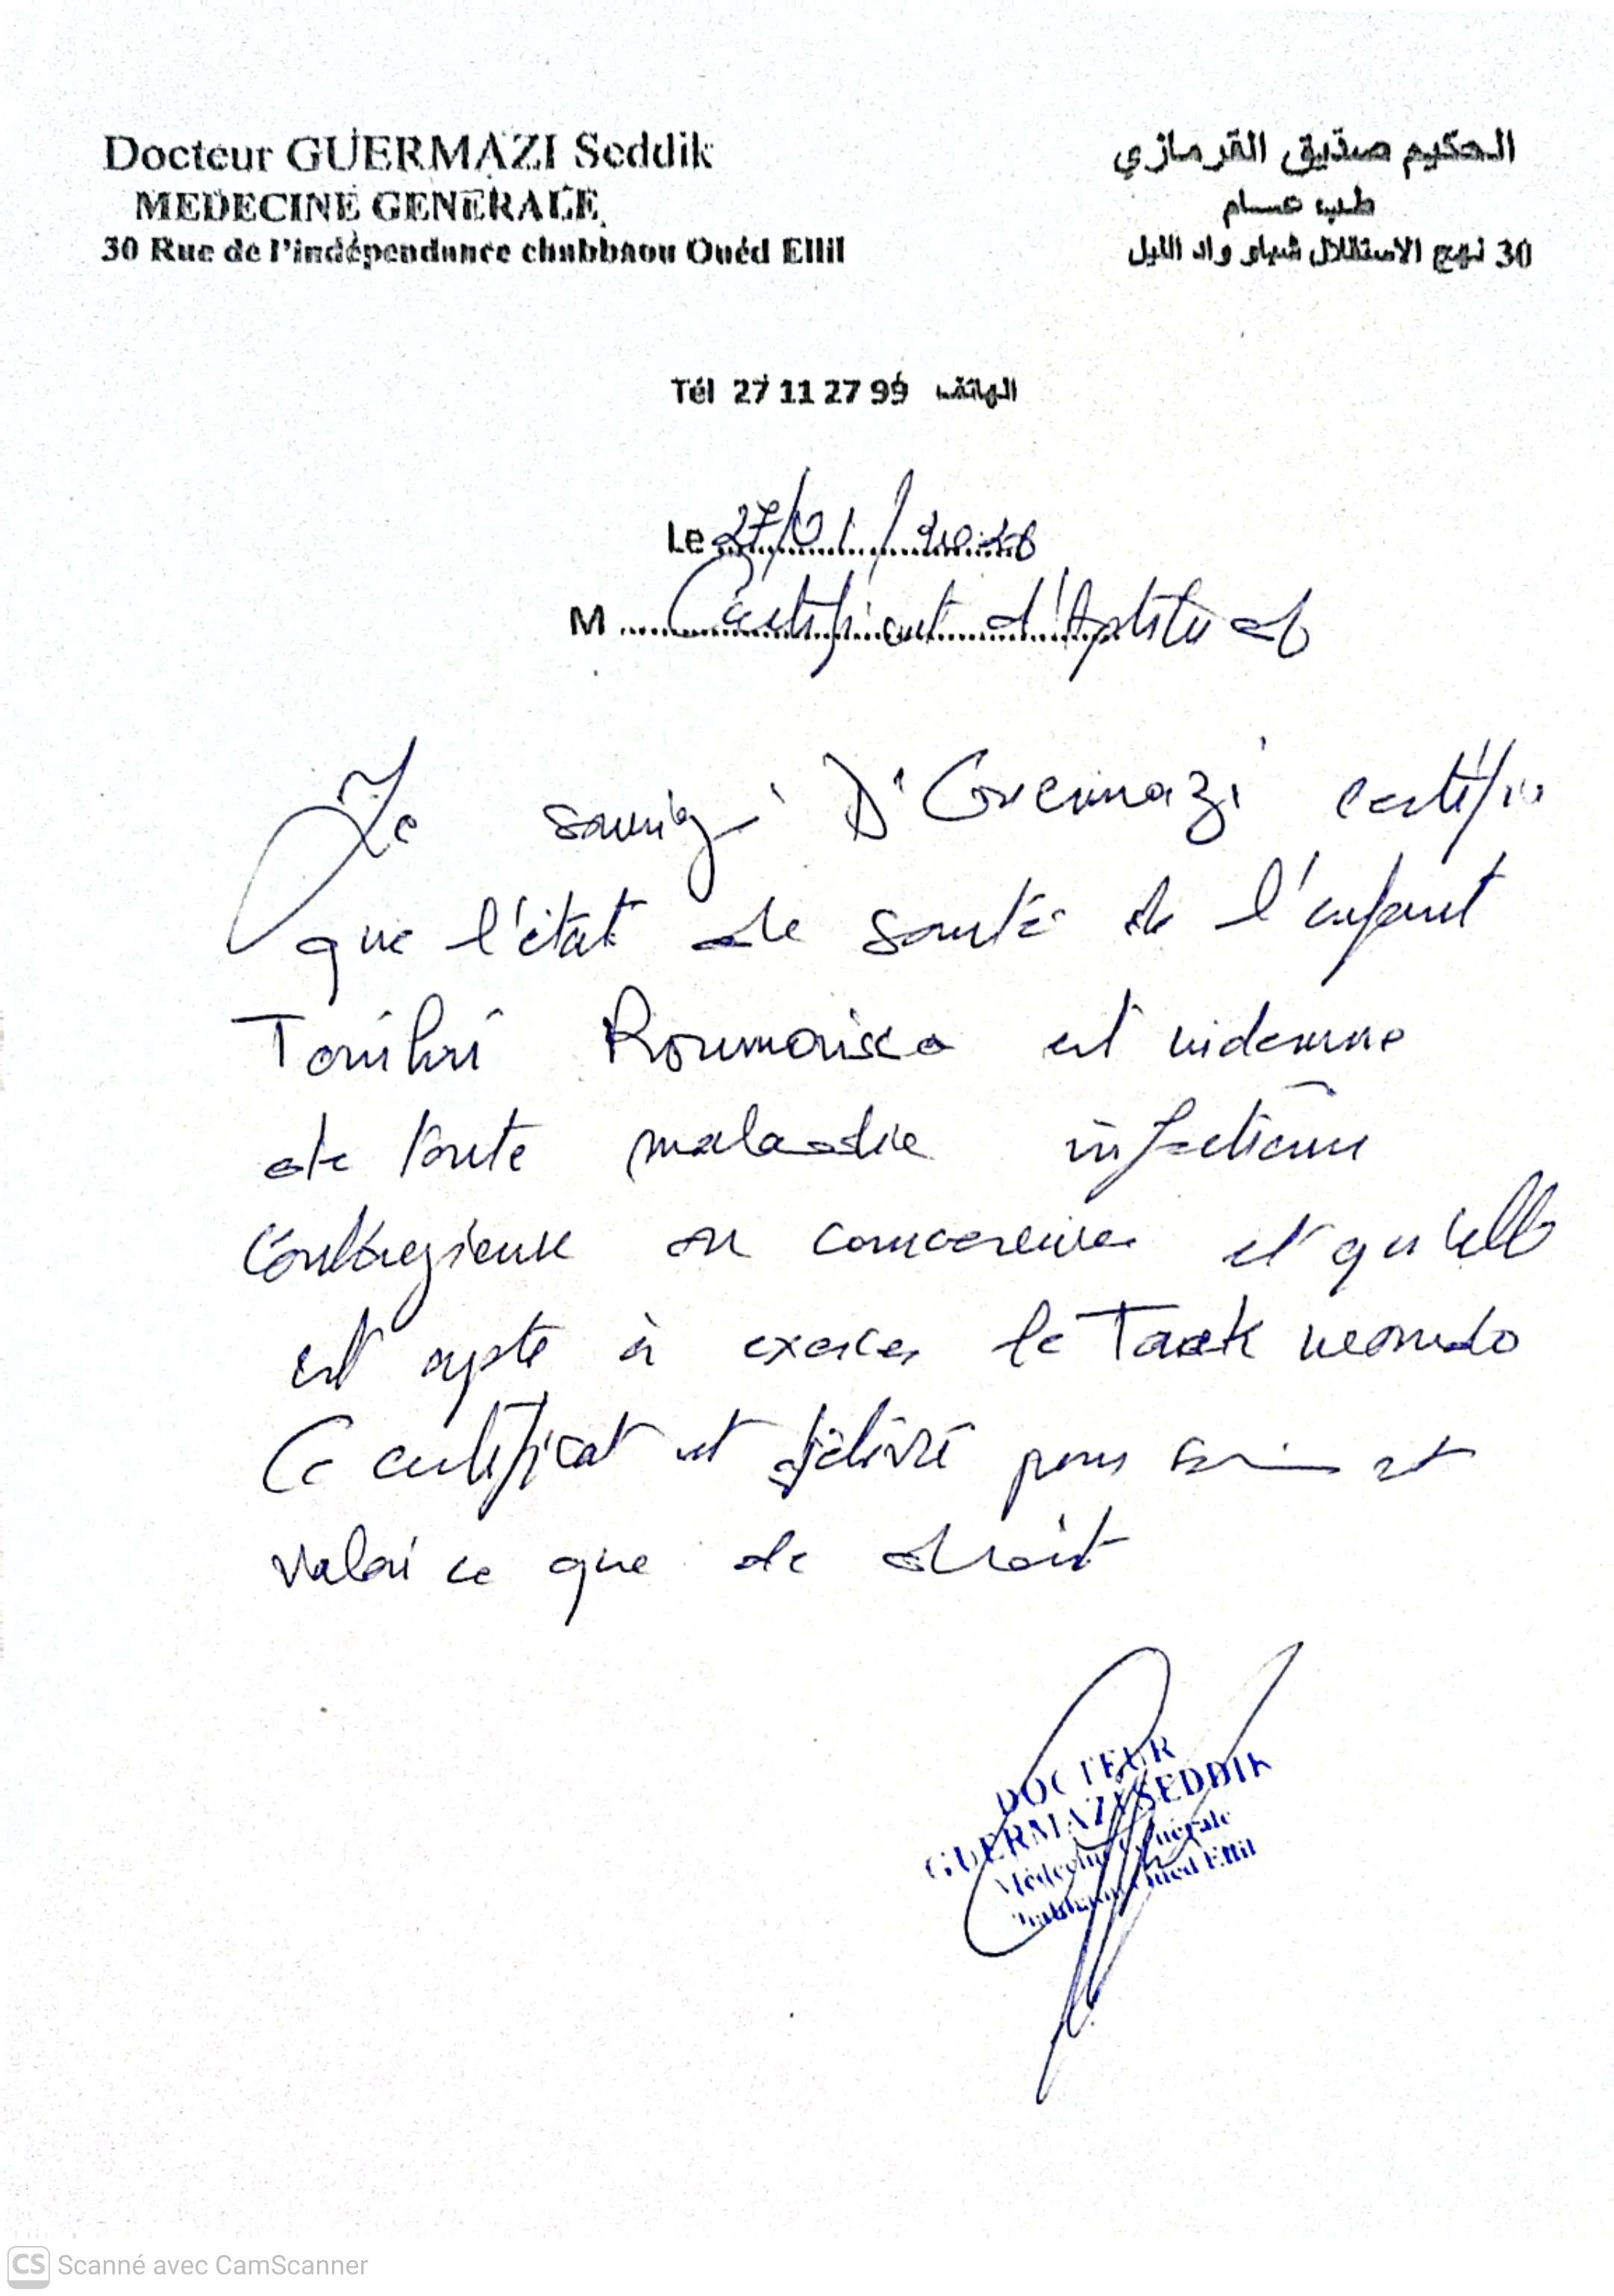 Docteur GUERMAZI Seddik
MEDECINE GENERALE
30 Rue de l'indépendance chabbaou Ouéd Ellil
الحكيم صديق القرمازي
طب عام
30 نهج الاستقلال شباو واد الليل
Tél 27 11 27 99 الهاتف
Le 27/01/2026
M Certificat d'Aptitude
Je soussigné Dr Guermazi certifie
que l'état de santé de l'enfant
Roumaissa est indemne
de toute maladie infectieuse
contagieuse ou cancereuse et qu'elle
est apte à exercer le Taek wondo
Ce certificat est délivré pour servir et
valoir ce que de droit
DOCTEUR
GUERMAZI SEDDIK
Médecine Générale
Chabbaou Oued Ellil
CS Scanné avec CamScanner